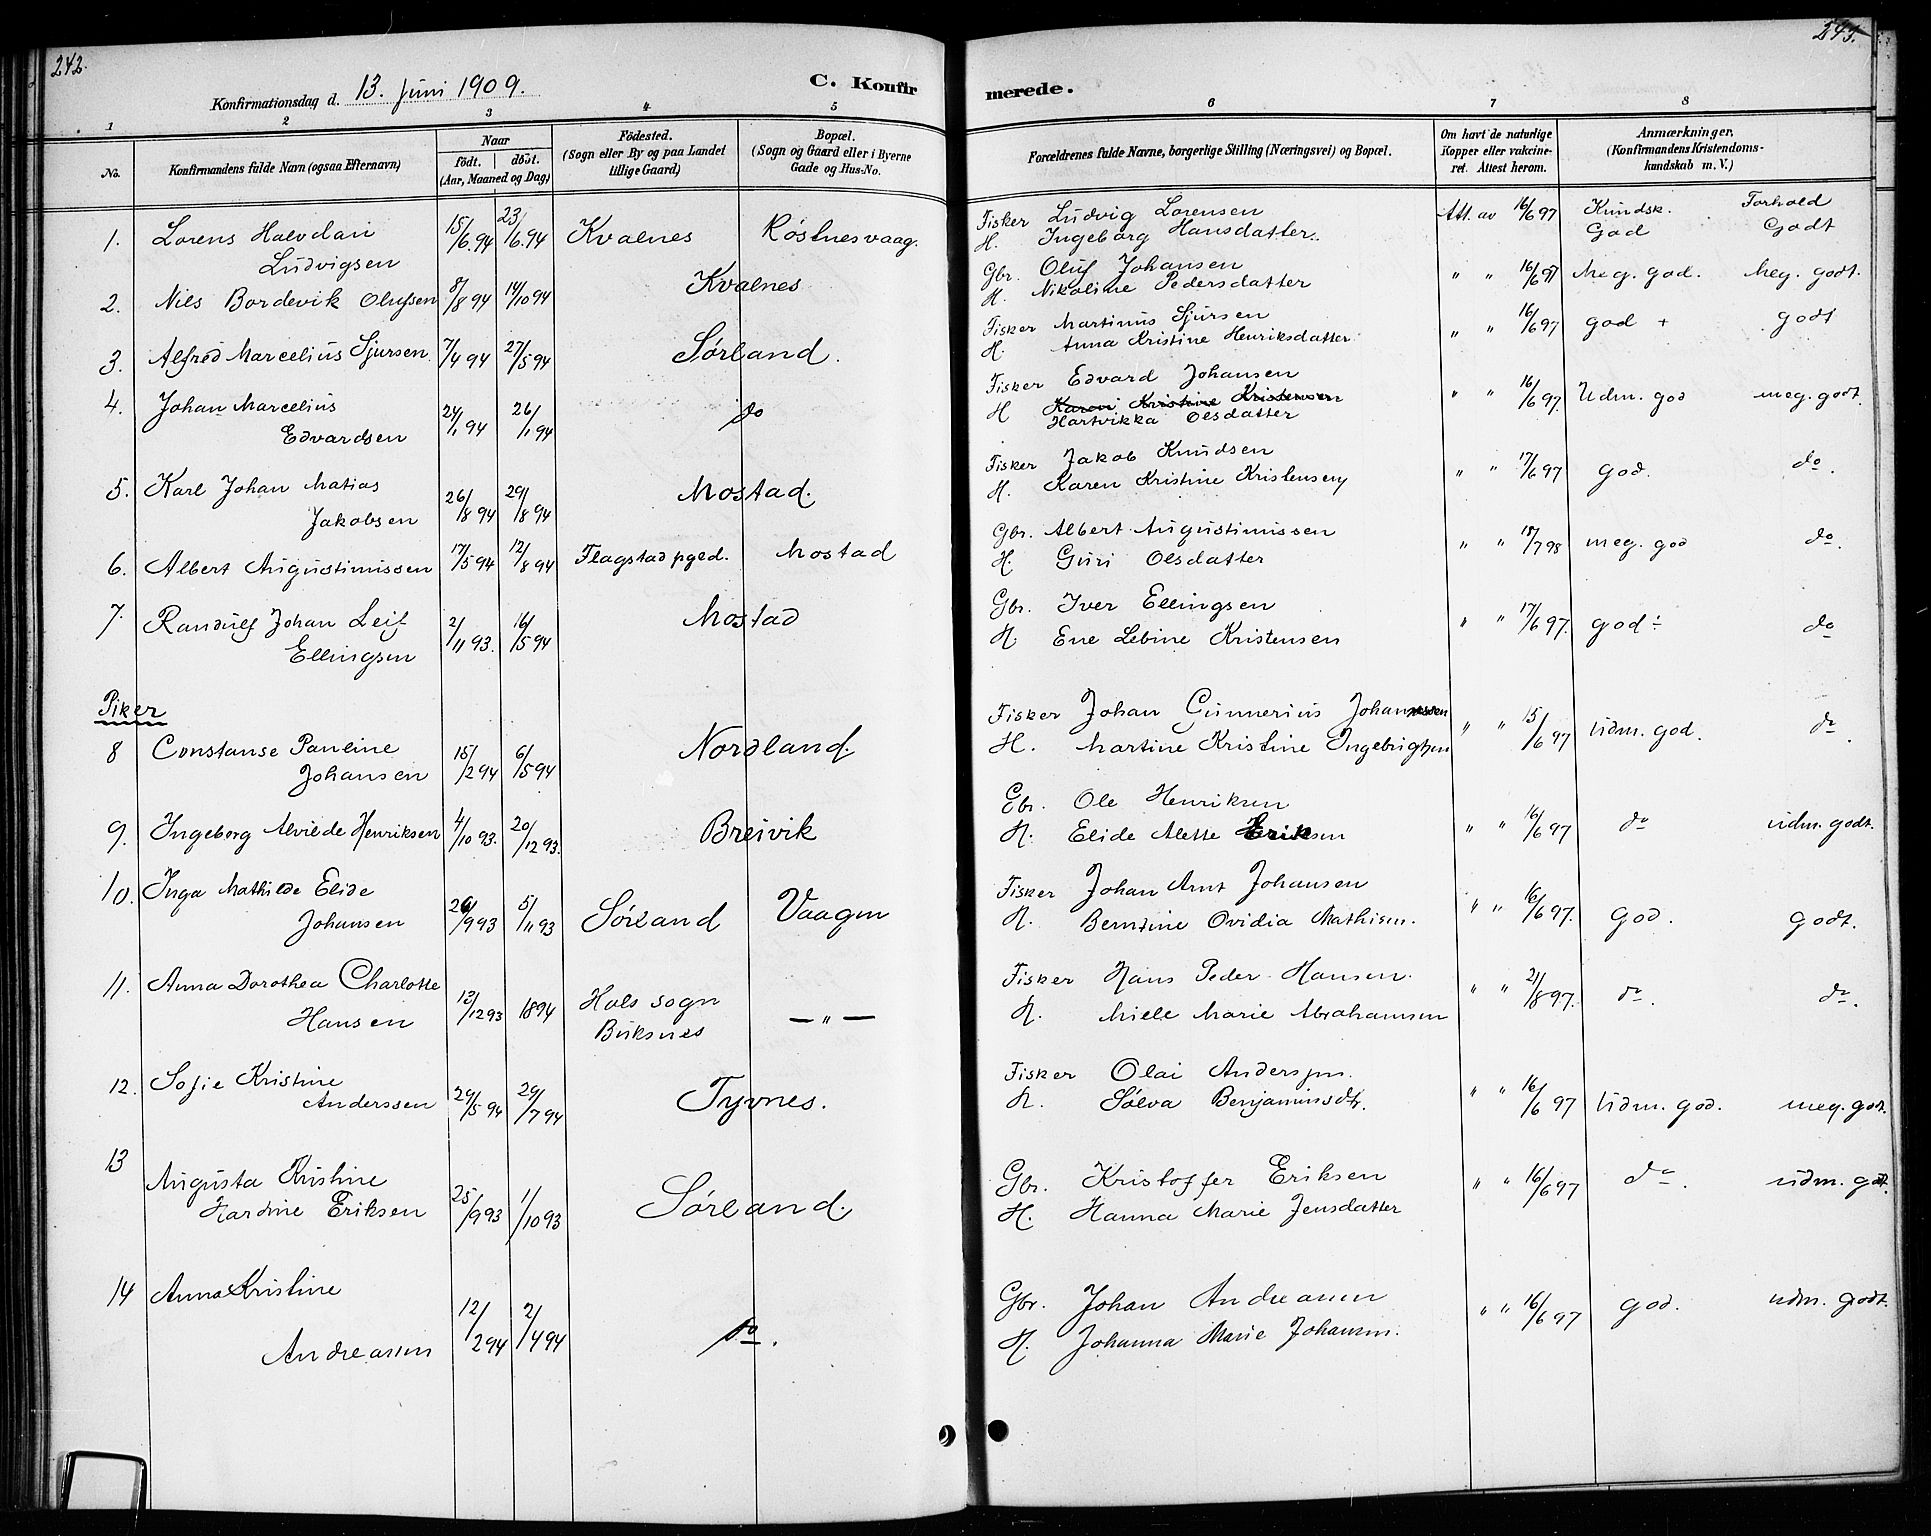 242.
243.
Konfirmationsdag d. 13. Juni 1909.
C. Konfir
merede.
1 2 3 4 5 6 7 8
No.
Konfirmandens fulde Navn (ogsaa Efternavn)
Naar
født. døbt.
(Aar, Maaned og Dag)
Fødested.
(Sogn eller By og paa Landet
tillige Gaard)
Bopæl.
(Sogn og Gaard eller i Byerne
Gade og Hus-No.
Forældrenes fulde Navne, borgerlige Stilling (Næringsvei) og Bopæl.
Om havt de naturlige
Kopper eller vakcine-
ret. Attest herom.
Anmærkninger,
(Konfirmandens Kristendoms-
kundskab m. V.)
Kundsk. Forhold
1. Lorens Halvdan
Ludvigsen
15/6.94 23/6.94 Kvalnes Røstnesvaag.
Fisker Ludvig Lorensen
H. Ingeborg Hansdatter.
Att. av 16/6 97 God Godt
2. Nils Bordevik Olufsen 8/8 94 14/10 94 Kvalnes
Gbr. Oluf Johansen
H. Nikoline Pedersdatter
" " 16/6 97 Meg. god. Meg. godt.
3. Alfred Marcelius Sjursen 7/4 94 27/5 94 Sørland.
Fisker Martinus Sjursen
H. Anna Kristine Henriksdatter
" " 16/6 97 god + godt
4. Johan Marcelius
Edvardsen
24/1 94 26/1 94 do
Fisker Edvard Johansen
H Karen Kristine Kristensen
Hartvikka Olsdatter
" " 16/6 97. Udm. god meg. godt.
5. Karl Johan Matias
Jakobsen
26/8 94 29/8 94 Mostad.
Fisker Jakob Knudsen
H. Karen Kristine Kristensen
" " 17/6 97 god. do.
6. Albert Augustinussen 17/5 94 12/8 94 Flagstad pgld. Mostad
Gbr. Albert Augustinussen
H. Guri Olsdatter
" " 18/7 98 meg. god do.
7. Randulf Johan Leif
Ellingsen
2/11 93. 16/5 94 Mostad
Gbr. Iver Ellingsen
H. Ene Lebine Kristensen
" " 17/6 97. god ÷ do
Piker
8 Constanse Pauline
Johansen
15/2 94 6/5 94 Nordland.
Fisker Johan Gunnerius Johannessen
H. Martine Kristine Ingebrigtsen
" " 15/6 97 Udm. god. do.
9. Ingeborg Alvilde Henriksen 4/10 93. 20/12 93. Breivik
Gbr. Ole Henriksen
H. Elide Alette Eriksen
" " 16/6 97 do udm. godt.
10. Inga Mathilde Elide
Johansen
26/9 93 5/11 93 Sørland Vaagen
Fisker Johan Arnt Johansen
H. Berntine Ovidia Mathisen.
" " 16/6 97. God. godt.
11. Anna Dorothea Charlotte
Hansen
13/12 93 1894 Hols sogn
Buksnes
— " —
Fisker Hans Peder Hansen.
H. Miele Marie Abrahamsen
" " 21/8 97. do. do.
12. Sofie Kristine
Anderssen
29/5 94 29/7 94 Tyvnes.
Fisker Olai Anderssen.
H. Sølva Benjaminsdtr.
" " 16/6 97 Udm. god. meg. godt.
13 Augusta Kristine
Hardine Eriksen
25/9 93 1/10 93 Sørland.
Gbr. Kristoffer Eriksen
H. Hanna Marie Jensdatter
" " 16/6 97 do. udm. godt.
14 Anna Kristine
Andreassen
12/2 94 2/4 94 do.
Gbr. Johan Andreassen
H. Johanna Marie Johansen.
" " 16/6 97 god. udm. godt.